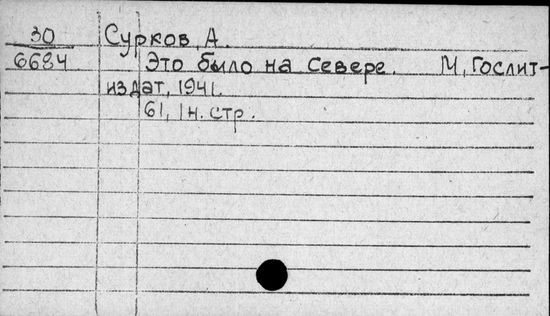 30 Сурков, А.
6684 Это было на севере. М, Гослит-
издат, 1941.
61, 1н. стр.